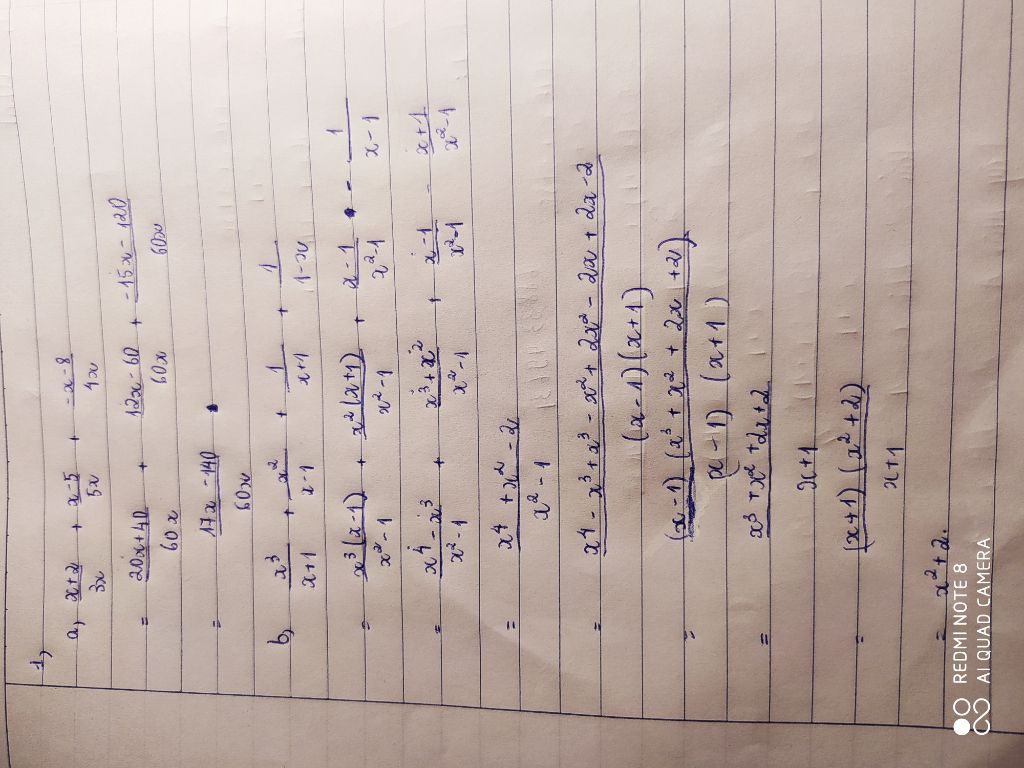 1,
a, (x+2)/(3x) + (x-5)/(5x) + (-x-8)/(4x)
= (20x+40)/(60x) + (12x-60)/(60x) + (-15x-120)/(60x)
= (17x-140)/(60x)
b, x³/(x+1) + x²/(x-1) + 1/(x+1) + 1/(1-x)
= x³(x-1)/(x²-1) + x²(x+1)/(x²-1) + (x-1)/(x²-1) - 1/(x-1)
= (x⁴-x³)/(x²-1) + (x³+x²)/(x²-1) + (x-1)/(x²-1) - (x+1)/(x²-1)
= (x⁴+x²-2)/(x²-1)
= (x⁴-x³+x³-x²+2x²-2x+2x-2)/((x-1)(x+1))
= (x-1)(x³+x²+2x+2)/((x-1)(x+1))
= (x³+x²+2x+2)/(x+1)
= (x+1)(x²+2)/(x+1)
= x²+2.
REDMI NOTE 8
AI QUAD CAMERA